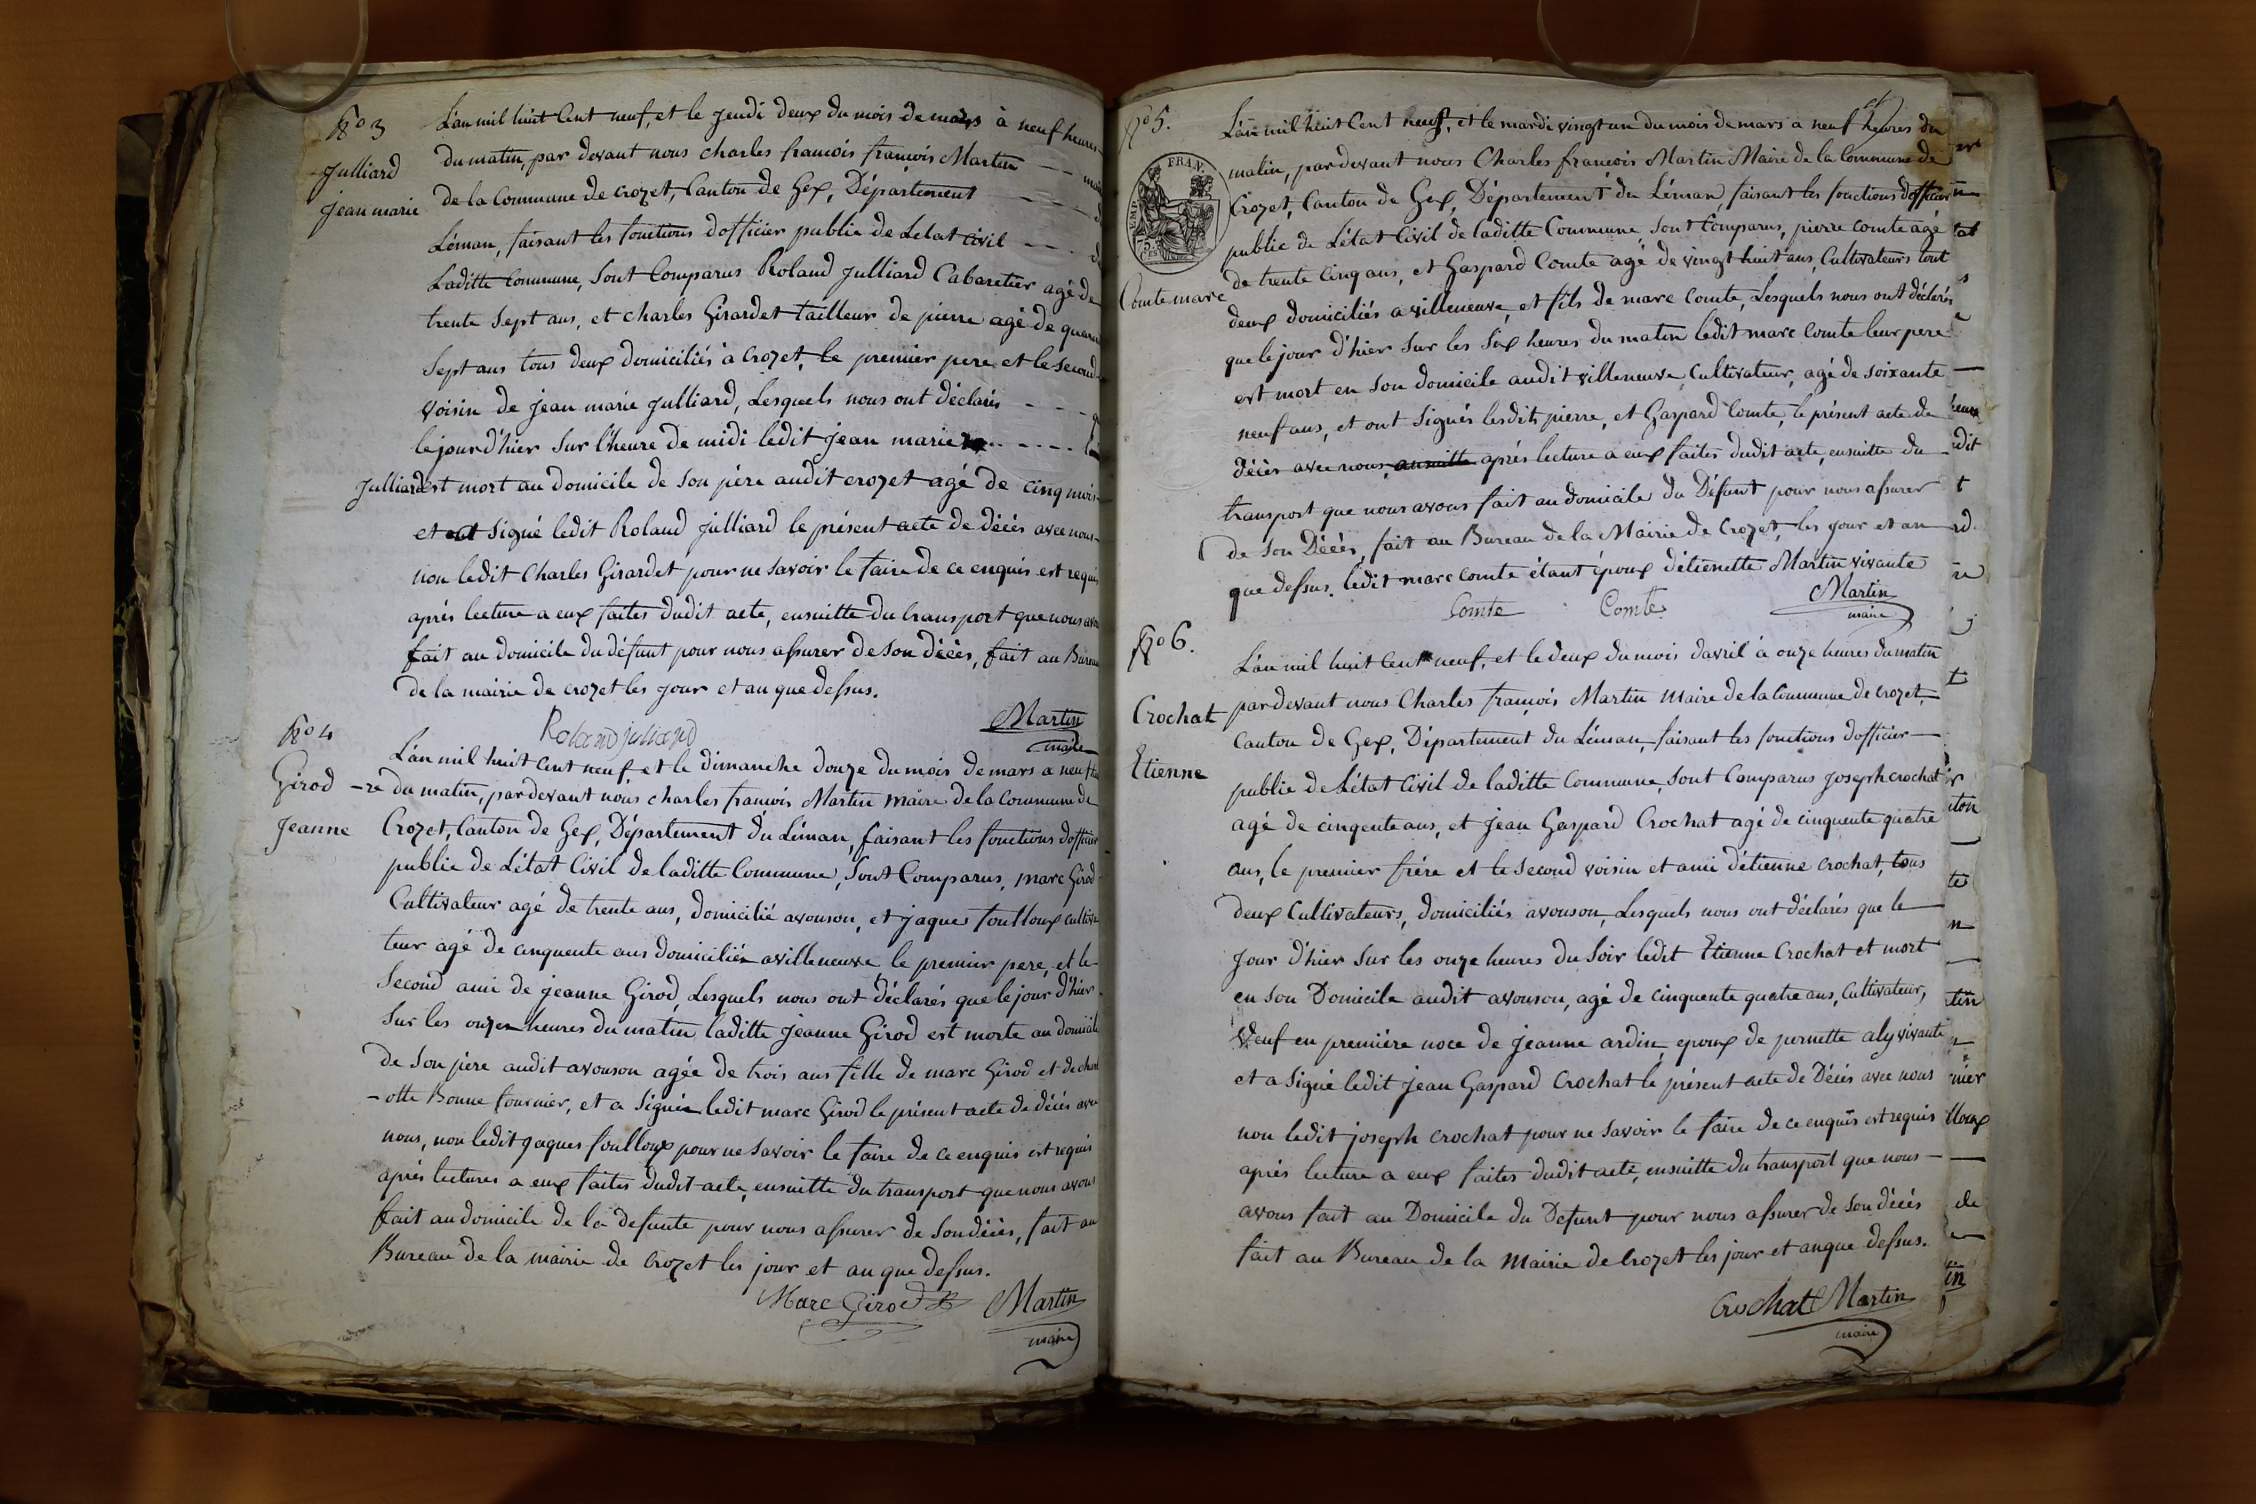 No 3
Julliard
jean marie
L'an mil huit Cent neuf, et le jeudi deux du mois de mars à neuf heures
du matin, par devant nous charles francois francois Martin
de la Commune de crozet, Canton de Gex, Département
Léman, faisant les fonctions d'officier public de L'état civil
Laditte Commune, sont Comparus Roland Julliard Cabaretier agé de
trente sept ans, et charles Girardet tailleur de pierre agé de quarante
sept ans tous deux domiciliés à Crozet, le premier pere et le second
voisin de jean marie Julliard, Lesquels nous ont déclarés
le jour d'hier sur l'heure de midi ledit jean marie
Julliard est mort au domicile de son père audit crozet agé de cinq mois
et a signé ledit Roland julliard le présent acte de décès avec nous
non ledit Charles Girardet pour ne savoir le faire de ce enquis est requis
après lecture a eux faites dudit acte, ensuitte du transport que nous avons
fait au domicile du défunt pour nous assurer de son décès, fait au Bureau
de la mairie de crozet les jour et an que dessus.
Roland juliard
Martin
maire
No 4
Girod
Jeanne
L'an mil huit cent neuf, et le dimanche douze du mois de mars a neuf heu
-re du matin, pardevant nous charles francois Martin maire de la Commune de
Crozet, Canton de Gex, Département du Léman, faisant les fonctions d'officier
public de L'état Civil de laditte Commune, sont Comparus, marc Girod
Cultivateur agé de trente ans, domicilié avouson, et jaques foulloux cultiva
teur agé de cinquente ans domiciliés avilleneuve le premier pere, et le
second ami de jeanne Girod, Lesquels nous ont déclarés que le jour d'hier
sur les onze heures du matin laditte jeanne Girod est morte au domicile
de son père audit avouson agée de trois ans fille de marc Girod et de charl
-otte Bonne fournier, et a signé ledit marc Girod le présent acte de décès avec
nous, non ledit jaques foulloux pour ne savoir le faire de ce enquis est requis
après lectures a eux faites dudit acte, ensuitte du transport que nous avons
fait au domicile de la defunte pour nous assurer de son décès, fait au
Bureau de la mairie de Crozet les jour et an que dessus.
Marc Girod
Martin
maire
No 5.
EMP. FRAN.
75 CES
Comte marc
L'an mil huit Cent neuf, et le mardi vingt un du mois de mars a neuf heures du
matin, pardevant nous Charles francois Martin Maire de la Commune de
Crozet, Canton de Gex, Département du Léman, faisant les fonctions d'officier
public de L'état Civil de laditte Commune, sont Comparus, pierre comte agé
de trente cinq ans, et Gaspard Comte agé de vingt huit ans, Cultivateurs tout
deux domiciliés a villeneuve, et fils de marc Comte, Lesquels nous ont déclarés
que le jour d'hier sur les six heures du matin ledit marc Comte leur pere
est mort en son domicile audit villeneuve, Cultivateur, agé de soixante
neuf ans, et ont signés lesdits pierre, et Gaspard Comte, le présent acte de
décès avec nous, ensuitte après lecture a eux faites dudit acte, ensuitte du
transport que nous avons fait au domicile du Défunt pour nous assurer
de son Décès, fait au Bureau de la Mairie de Crozet, les jour et an
que dessus. ledit marc comte étant époux d'etienette Martin vivante
Comte
Comte
Martin
maire
No 6.
Crochat
Etienne
L'an mil huit Cent neuf, et le deux du mois d'avril à onze heures du matin
pardevant nous Charles françois Martin maire de la Commune de crozet,
Canton de Gex, Département du Léman, faisant les fonctions d'officier
public de L'état Civil de laditte Commune, sont Comparus Joseph crochat
agé de cinqente ans, et jean Gaspard Crochat agé de cinquente quatre
ans, le premier frére et le second voisin et ami d'étienne crochat, tous
deux Cultivateurs, domiciliés avouson, Lesquels nous ont déclarés que le
jour d'hier sur les onze heures du soir ledit Etienne Crochat et mort
en son Domicile audit avouson, agé de cinquente quatre ans, Cultivateur,
Veuf en première noce de jeanne ardin, epoux de pernette aly vivante
et a signé ledit jean Gaspard Crochat le présent acte de Décès avec nous
non ledit joseph crochat pour ne savoir le faire de ce enquis est requis
après lecture a eux faites dudit acte, ensuitte du transport que nous
avons fait au Domicile du Défunt pour nous assurer de son décès
fait au Bureau de la Mairie de Crozet les jour et an que dessus.
Crochat
Martin
maire